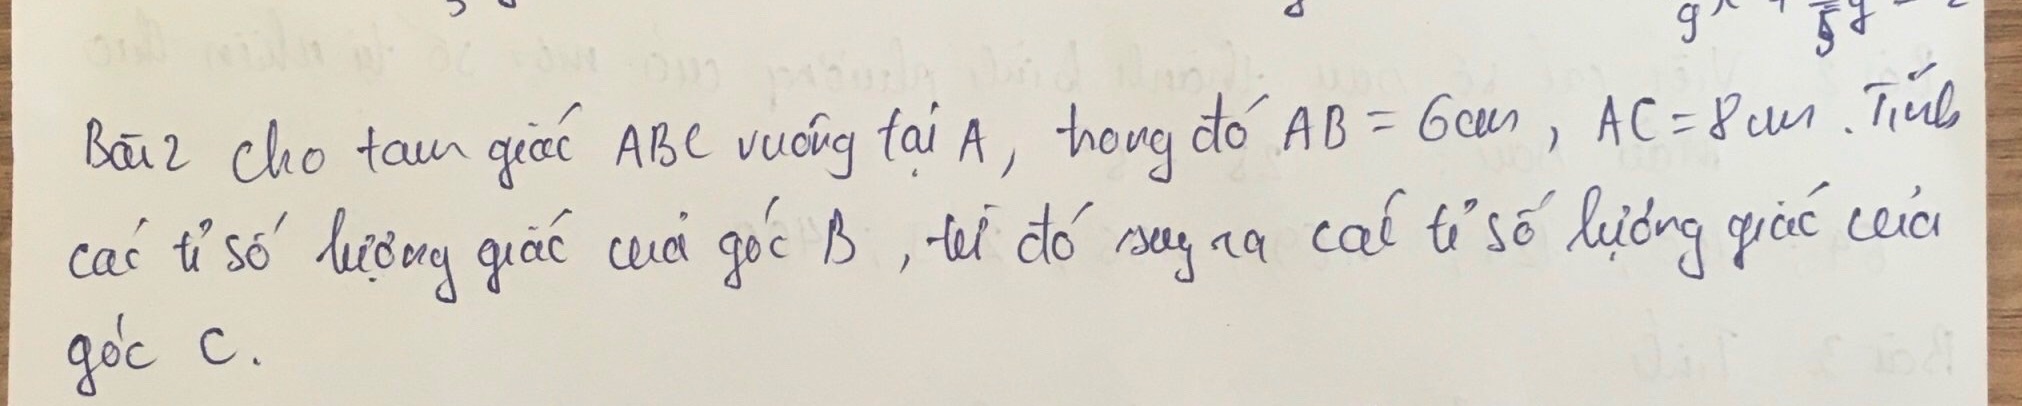 Bài 2 cho tam giác ABC vuông tại A, trong đó AB = 6cm, AC = 8cm. Tính
các tỉ số lượng giác của góc B, từ đó suy ra các tỉ số lượng giác của
góc C.